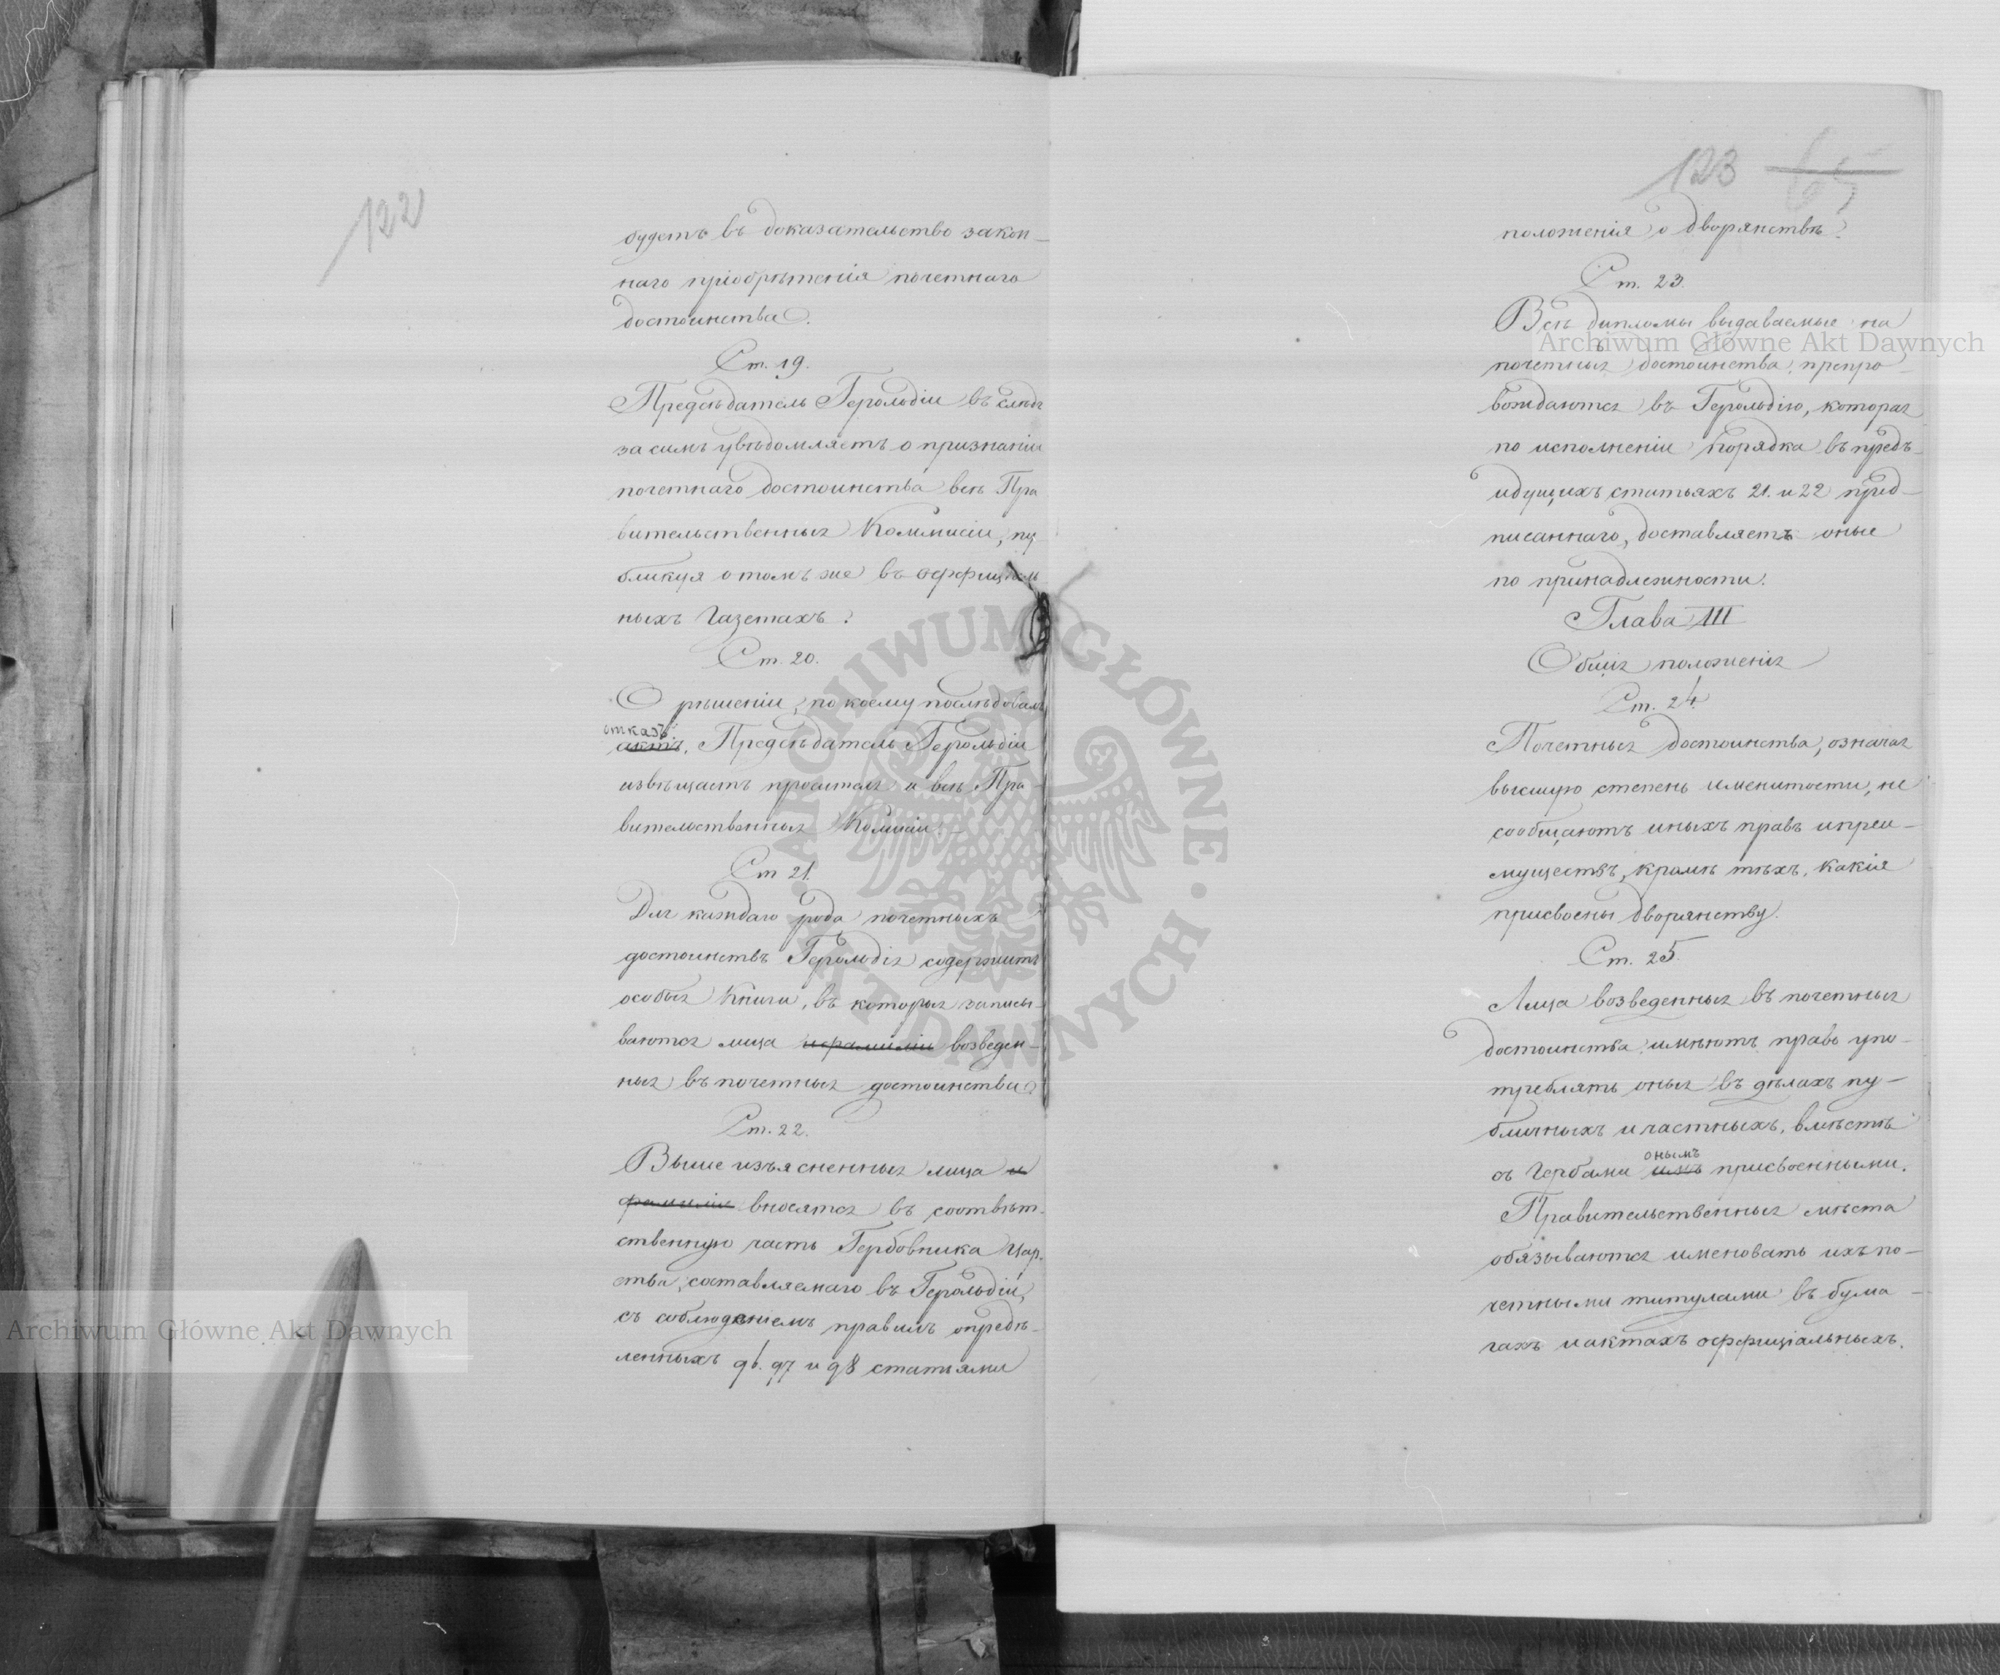 122
будетъ въ доказательство закон-
наго пріобрѣтенія почетнаго
достоинства.
Ст. 19.
Предсѣдатель Герольдіи въ слѣдъ
за симъ увѣдомляетъ о признаніи
почетнаго достоинства всѣ Пра
вительственныя Коммисіи, пу
бликуя о томъ же въ оффиціаль
ныхъ Газетахъ.
Ст. 20.
О рѣшеніи, по коему послѣдовалъ
отказъ
Предсѣдатель Герольдіи
извѣщаетъ просителя и всѣ Пра-
вительственныя Комисіи.
Ст 21.
Для каждаго рода почетныхъ
достоинствъ Герольдія содержитъ
особыя Книги, въ которыя записы-
ваются лица и фамиліи возведен-
ныя въ почетныя достоинства
Ст. 22.
Выше изъясненныя лица и
фамиліи вносятся въ соотвѣт-
ственную часть Гербовника Цар-
ства, составляемаго въ Герольдіи,
съ соблюденіемъ правилъ опредѣ-
ленныхъ 96. 97 и 98 статьями
123 65
положенія о дворянствѣ.
Ст. 23.
Всѣ дипломы выдаваемые на
почетныя достоинства, препро-
вождаются въ Герольдію, которая
по исполненіи порядка въ предъ-
идущихъ статьяхъ 21. и 22 пред-
писаннаго, доставляетъ оные
по принадлежности.
Глава III
Общія положенія
Ст. 24.
Почетныя достоинства, означая
высшую степень именитости, не
сообщаютъ иныхъ правъ и преи-
муществъ, кромѣ тѣхъ, какія
присвоены дворянству.
Ст. 25.
Лица возведенныя въ почетныя
достоинства имѣютъ право упо-
треблять оныя въ дѣлахъ пу-
бличныхъ и частныхъ, вмѣстѣ
онымъ
съ Гербами имъ присвоенными.
Правительственныя мѣста
обязываются именовать ихъ по-
четными титулами въ бума-
гахъ и актахъ оффиціальныхъ.
Archiwum Główne Akt Dawnych
Archiwum Główne Akt Dawnych
ARCHIWUM GŁÓWNE AKT DAWNYCH